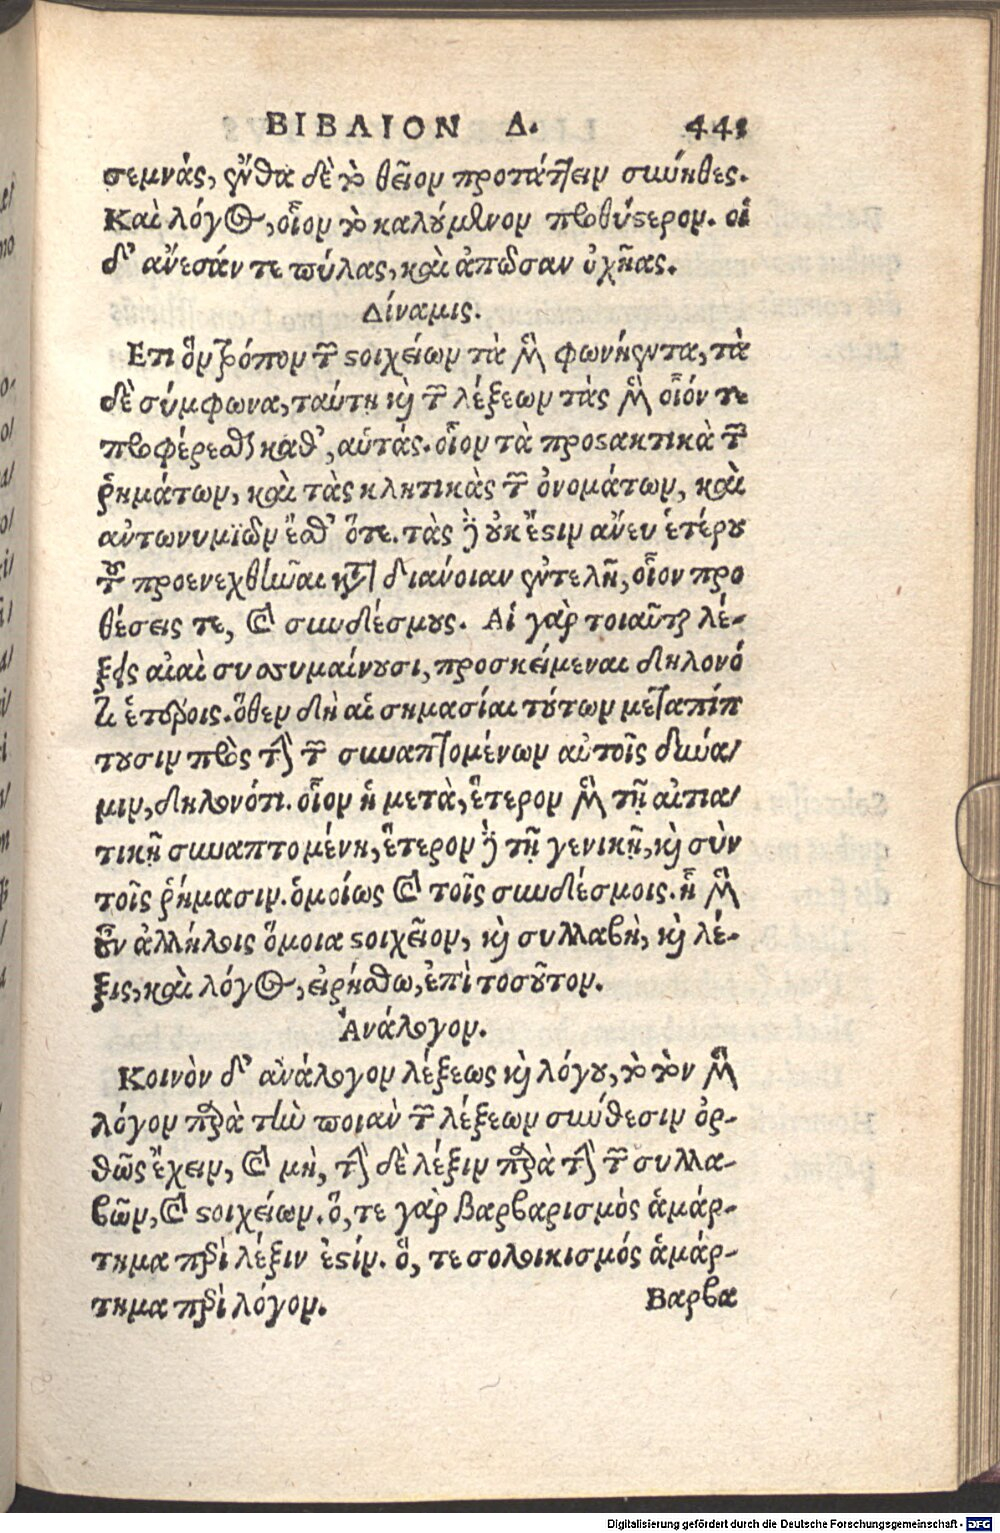 ΒΙΒΛΙΟΝ Δ. 441
σεμνάς, ἔνθα δὲ τὸ θεῖον προτάττειν σύνηθες.
Καὶ λόγος, οἷον τὸ καλούμενον πρωθύστερον. οἱ
δ' ἄνεσάν τε πύλας, καὶ ἀπῶσαν ὀχῆας.
Δύναμις.
Ετι ὃν τρόπον τῶν στοιχείων τὰ μὲν φωνήεντα, τὰ
δὲ σύμφωνα, ταύτῃ καὶ τῶν λέξεων τὰς μὲν οἷόν τε
προφέρεσθαι καθ', αὑτάς. οἷον τὰ προστακτικὰ τῶν
ῥημάτων, καὶ τὰς κλητικὰς τῶν ὀνομάτων, καὶ
αὐτωνυμϊῶν ἔσθ' ὅτε. τὰς δὲ οὐκ ἔστιν ἄνευ ἑτέρου
του προενεχθῆναι κατὰ διάνοιαν ἐντελῆ, οἷον προ
θέσεις τε, καὶ συνδέσμους. Αἱ γὰρ τοιαῦται λέ-
ξεις αἰεὶ συσσυμαίνουσι, προσκείμεναι δηλονό
τι ἑτέροις. ὅθεν δὴ αἱ σημασίαι τούτων μεταπίπ
τουσιν πρὸς τὴν τῶν συναπτομένων αὐτοῖς δύνα/
μιν, δηλονότι. οἷον ἡ μετὰ, ἕτερον μὲν τῇ αἰτια/
τικῇ συναπτομένη, ἕτερον δὲ τῇ γενικῇ, καὶ σὺν
τοῖς ῥήμασιν. ὁμοίως καὶ τοῖς συνδέσμοις. ᾗ μὲν
οὖν ἀλλήλοις ὅμοια στοιχεῖον, καὶ συλλαβὴ, καὶ λέ-
ξις, καὶ λόγος, εἰρήσθω, ἐπὶ τοσοῦτον.
Ἀνάλογον.
Κοινὸν δ' ἀνάλογον λέξεως καὶ λόγου, τὸ τὸν μὲν
λόγον παρὰ τὴν ποιαὺ τῶν λέξεων σύνθεσιν ὀρ-
θῶς ἔχειν, καὶ μὴ, τὴν δὲ λέξιν παρὰ τὴν τῶν συλλα-
βῶν, καὶ στοιχείων. ὅ, τε γὰρ βαρβαρισμὸς ἁμάρ-
τημα περὶ λέξιν ἐστίν. ὅ, τε σολοικισμός ἁμάρ-
τημα περὶ λόγον. Βαρβα
Digitalisierung gefördert durch die Deutsche Forschungsgemeinschaft - DFG